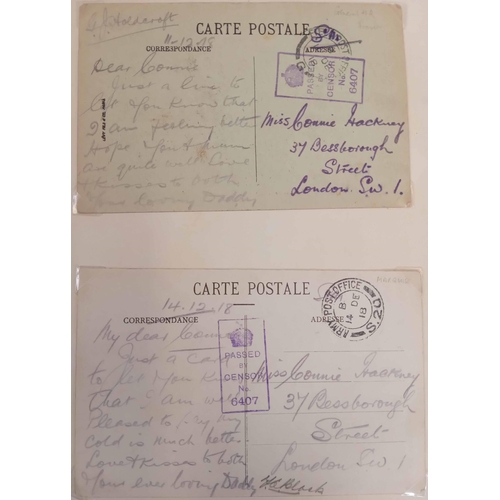 CARTE POSTALE
CORRESPONDANCE
ADRESSE
11-12-18
Dear Connie
Just a line to
let you know that
I am feeling better
Hope you & mum
are quite well Love
& kisses to both
Yours loving Daddy
PASSED
BY
CENSOR
No.
6407
Miss Connie Hackney
37 Bessborough
Street
London. S.W. 1.
CARTE POSTALE
14.12.18
CORRESPONDANCE
ADRESSE
My dear Connie
Just a card
to let you k
that I am well
Pleased to say my
cold is much better
Love & Kisses to both
Yours ever loving Daddy
PASSED
BY
CENSOR
No.
6407
ARMY POST OFFICE
8
14 DE
18
S.2D
Miss Connie Hackney
37 Bessborough
Street
London SW 1